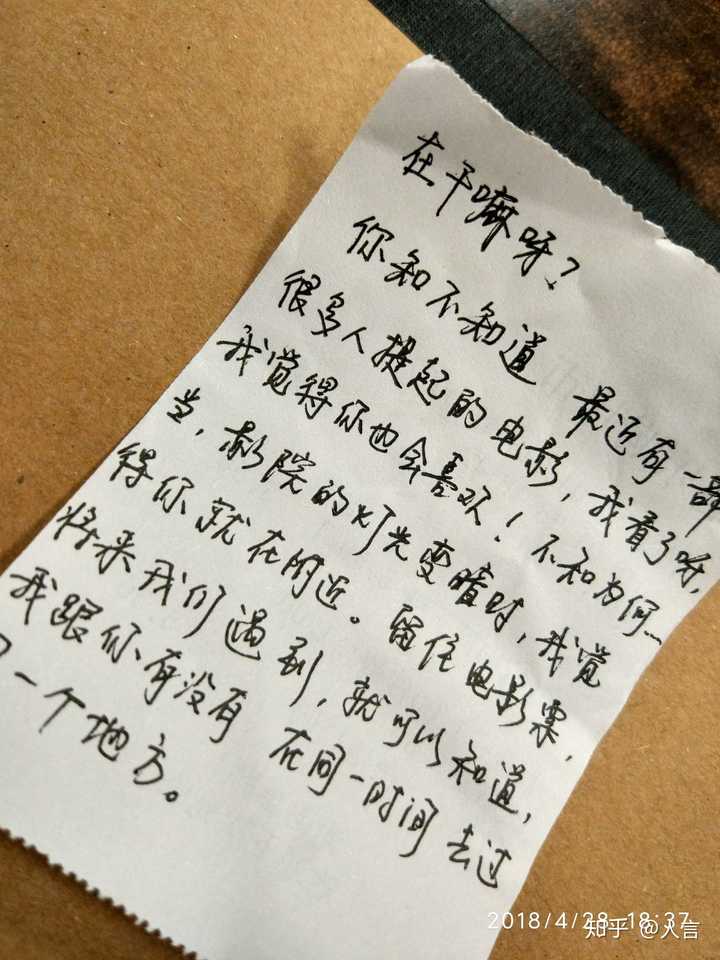 在干嘛呀？
你知不知道 最近有一部
很多人提起的电影，我看了呀，
我觉得你也会喜欢！不知为何…
当，影院的灯光变暗时，我觉
得你就在附近。留住电影票，
将来我们遇到，就可以知道，
我跟你有没有 在同一时间去过
一个地方。
2018/4/28 18:37
知乎 @人言